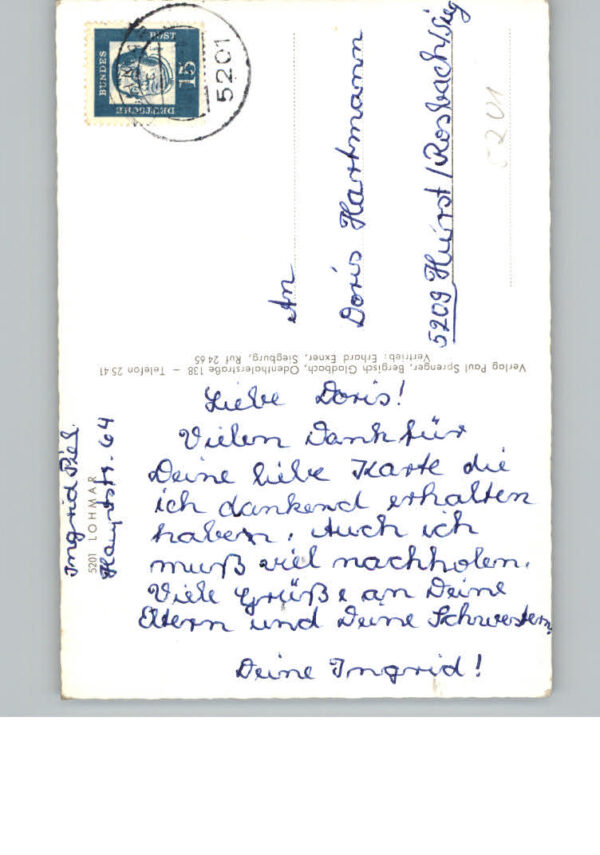 DEUTSCHE
BUNDES
POST
15
5201
An
Doris Hartmann
5209 Hurst/Rosbach/Sieg
5201
Verlag Paul Sprenger, Bergisch Gladbach, Odenthalerstraße 138 – Telefon 25 41
Vertrieb: Erhard Exner, Siegburg, Ruf 24 65
Ingrid Piel.
5201 LOHMAR
Hauptstr. 64
Liebe Doris!
Vielen Dank für
Deine liebe Karte die
ich dankend erhalten
haben. Auch ich
muß viel nachholen.
Viele Grüße an Deine
Eltern und Deine Schwestern
Deine Ingrid!